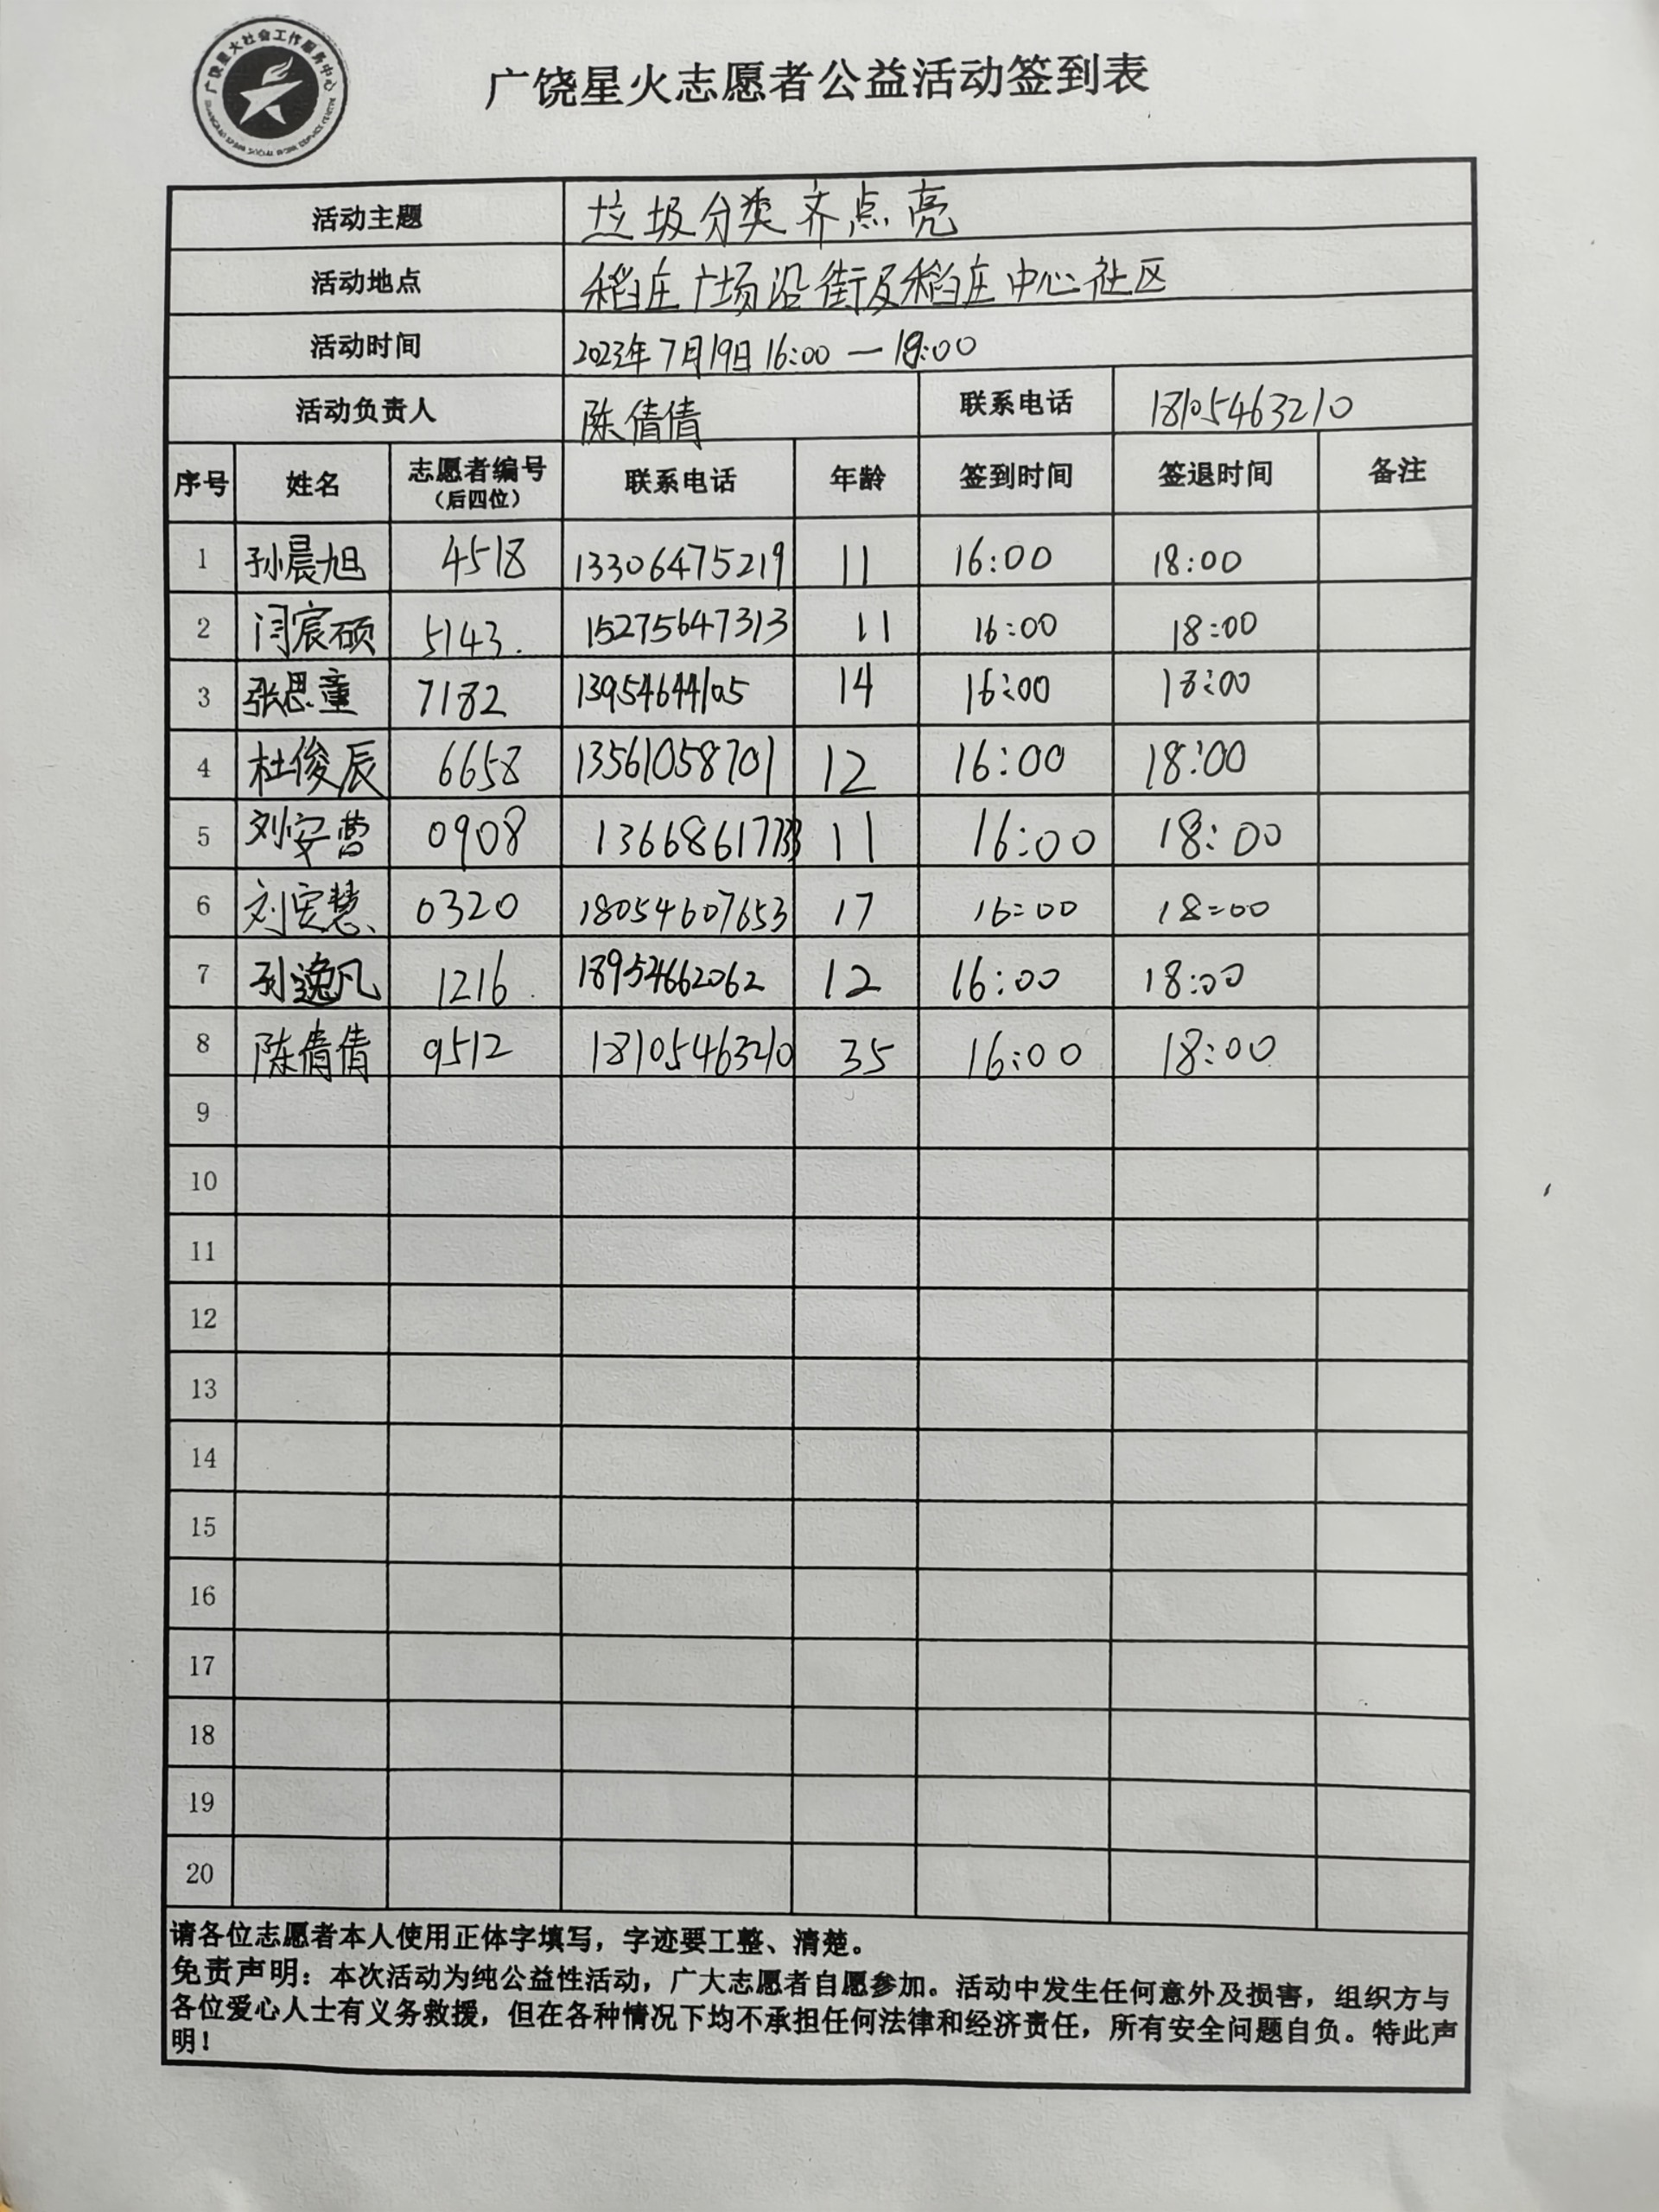 广饶星火社会工作服务中心
广饶星火志愿者公益活动签到表
活动主题 垃圾分类齐点亮
活动地点 稻庄广场沿街及稻庄中心社区
活动时间 2023年7月19日16:00—18:00
活动负责人 陈倩倩 联系电话 18105463210
序号 姓名 志愿者编号 联系电话 年龄 签到时间 签退时间 备注
(后四位)
1 孙晨旭 4518 13306475219 11 16:00 18:00
2 闫宸硕 5143. 15275647313 11 16:00 18:00
3 张思童 7182 13954644105 14 16:00 18:00
4 杜俊辰 6658 13561058701 12 16:00 18:00
5 刘安营 0908 11 16:00 18:00
6 刘宏慧 0320 18054607653 17 16:00 18:00
7 孙逸凡 1216. 18954662062 12 16:00 18:00
8 陈倩倩 9512 18105463210 35 16:00 18:00
9
10
11
12
13
14
15
16
17
18
19
20
请各位志愿者本人使用正体字填写，字迹要工整、清楚。
免责声明：本次活动为纯公益性活动，广大志愿者自愿参加。活动中发生任何意外及损害，组织方与
各位爱心人士有义务救援，但在各种情况下均不承担任何法律和经济责任，所有安全问题自负。特此声
明！